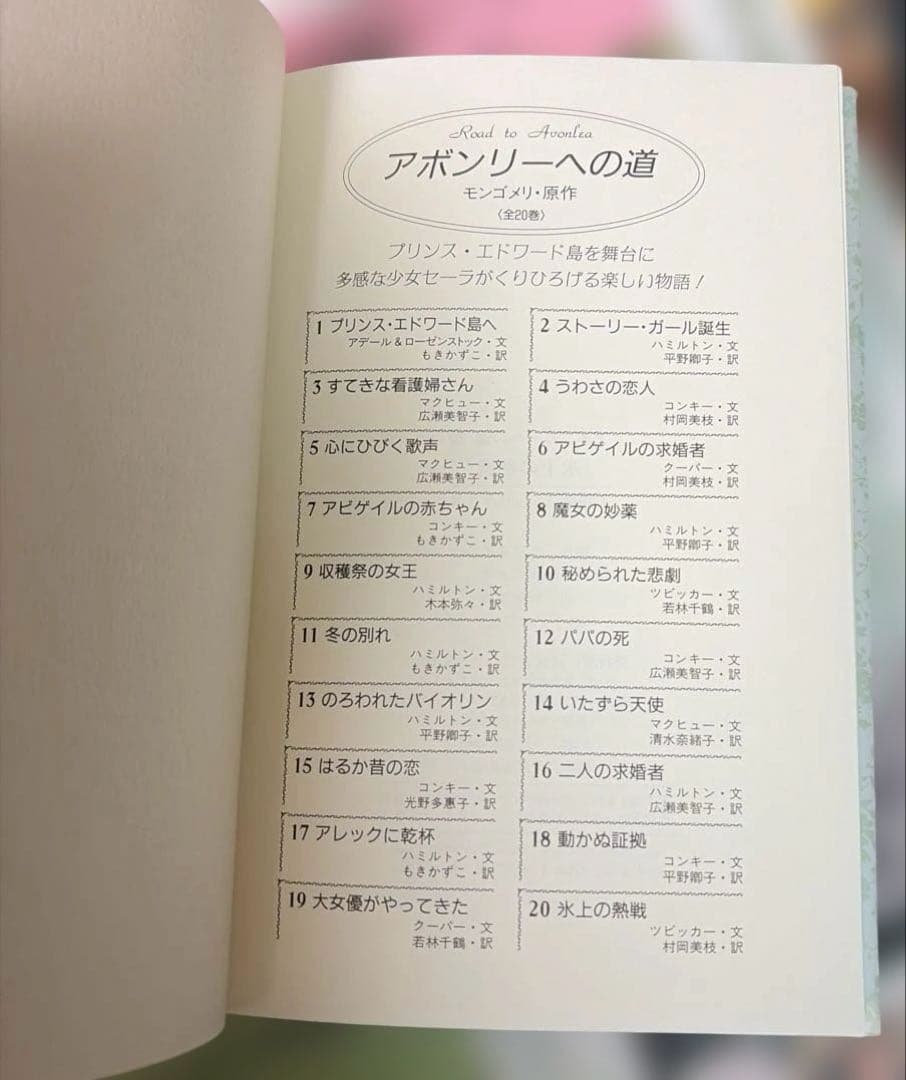 Road to Avonlea
アボンリーへの道
モンゴメリ・原作
〈全20巻〉
プリンス・エドワード島を舞台に
多感な少女セーラがくりひろげる楽しい物語！
1 プリンス・エドワード島へ
アデール&ローゼンストック・文
もきかずこ・訳
2 ストーリー・ガール誕生
ハミルトン・文
平野卿子・訳
3 すてきな看護婦さん
マクヒュー・文
広瀬美智子・訳
4 うわさの恋人
コンキー・文
村岡美枝・訳
5 心にひびく歌声
マクヒュー・文
広瀬美智子・訳
6 アビゲイルの求婚者
クーパー・文
村岡美枝・訳
7 アビゲイルの赤ちゃん
コンキー・文
もきかずこ・訳
8 魔女の妙薬
ハミルトン・文
平野卿子・訳
9 収穫祭の女王
ハミルトン・文
木本弥々・訳
10 秘められた悲劇
ツビッカー・文
若林千鶴・訳
11 冬の別れ
ハミルトン・文
もきかずこ・訳
12 パパの死
コンキー・文
広瀬美智子・訳
13 のろわれたバイオリン
ハミルトン・文
平野卿子・訳
14 いたずら天使
マクヒュー・文
清水奈緒子・訳
15 はるか昔の恋
コンキー・文
光野多惠子・訳
16 二人の求婚者
ハミルトン・文
広瀬美智子・訳
17 アレックに乾杯
ハミルトン・文
もきかずこ・訳
18 動かぬ証拠
コンキー・文
平野卿子・訳
19 大女優がやってきた
クーパー・文
若林千鶴・訳
20 氷上の熱戦
ツビッカー・文
村岡美枝・訳